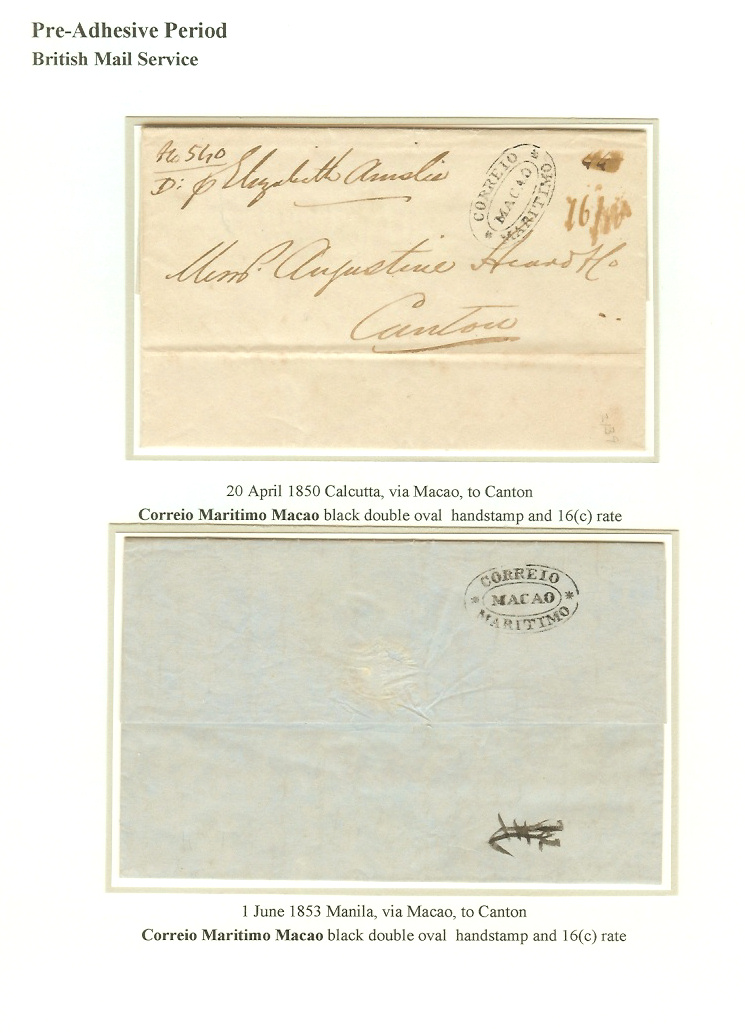 Pre-Adhesive Period
British Mail Service
No 540
D: p Elizabeth Ainslie
CORREIO
MACAO
MARITIMO
16
Messrs. Augustine Heard & Co
Canton
20 April 1850 Calcutta, via Macao, to Canton
Correio Maritimo Macao black double oval handstamp and 16(c) rate
CORREIO
* MACAO *
MARITIMO
1 June 1853 Manila, via Macao, to Canton
Correio Maritimo Macao black double oval handstamp and 16(c) rate